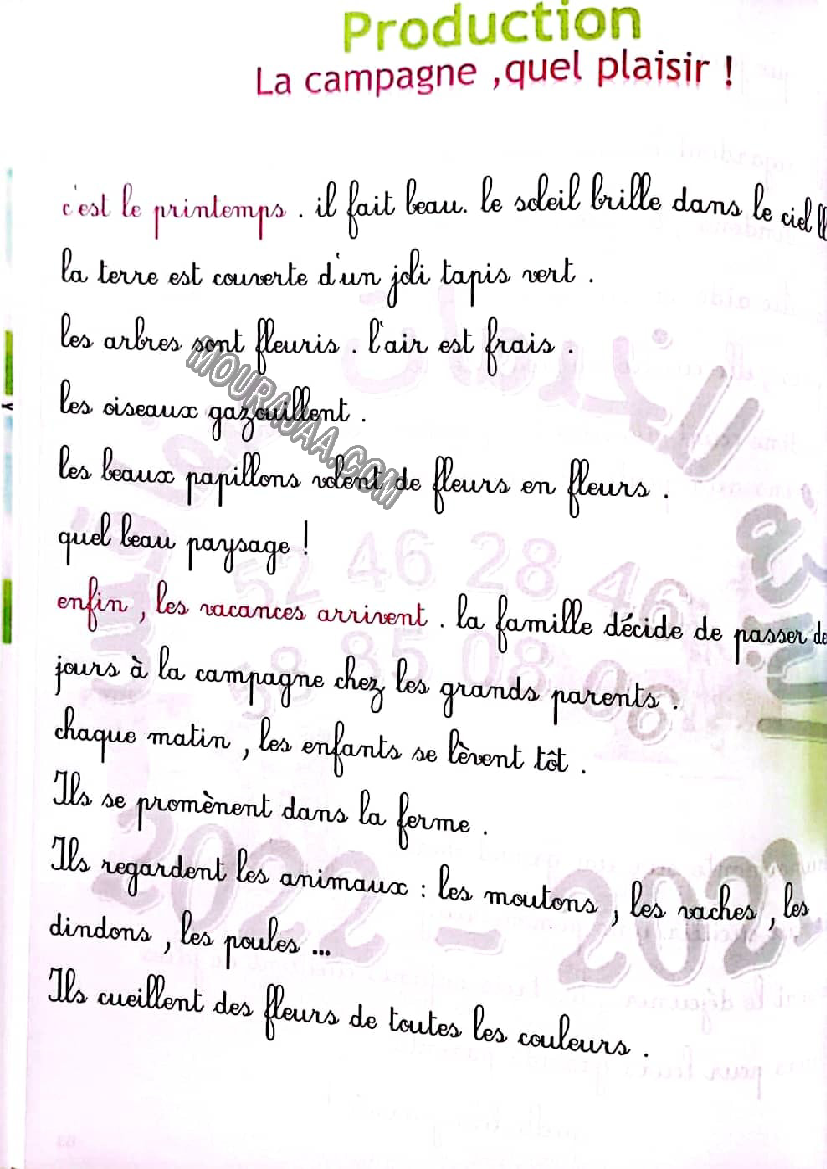 Production
La campagne ,quel plaisir !
c'est le printemps . il fait beau. le soleil brille dans le ciel
la terre est couverte d'un joli tapis vert .
les arbres sont fleuris . l'air est frais .
MOURAJAA.COM
les oiseaux gazouillent .
les beaux papillons volent de fleurs en fleurs .
quel beau paysage !
52 46 28 46
enfin , les vacances arrivent . la famille décide de passer de
58 85 08 06
jours à la campagne chez les grands parents .
chaque matin , les enfants se lèvent tôt .
Ils se promènent dans la ferme .
Ils regardent les animaux : les moutons , les vaches , les
2022 - 2021
dindons , les poules ...
Ils cueillent des fleurs de toutes les couleurs .